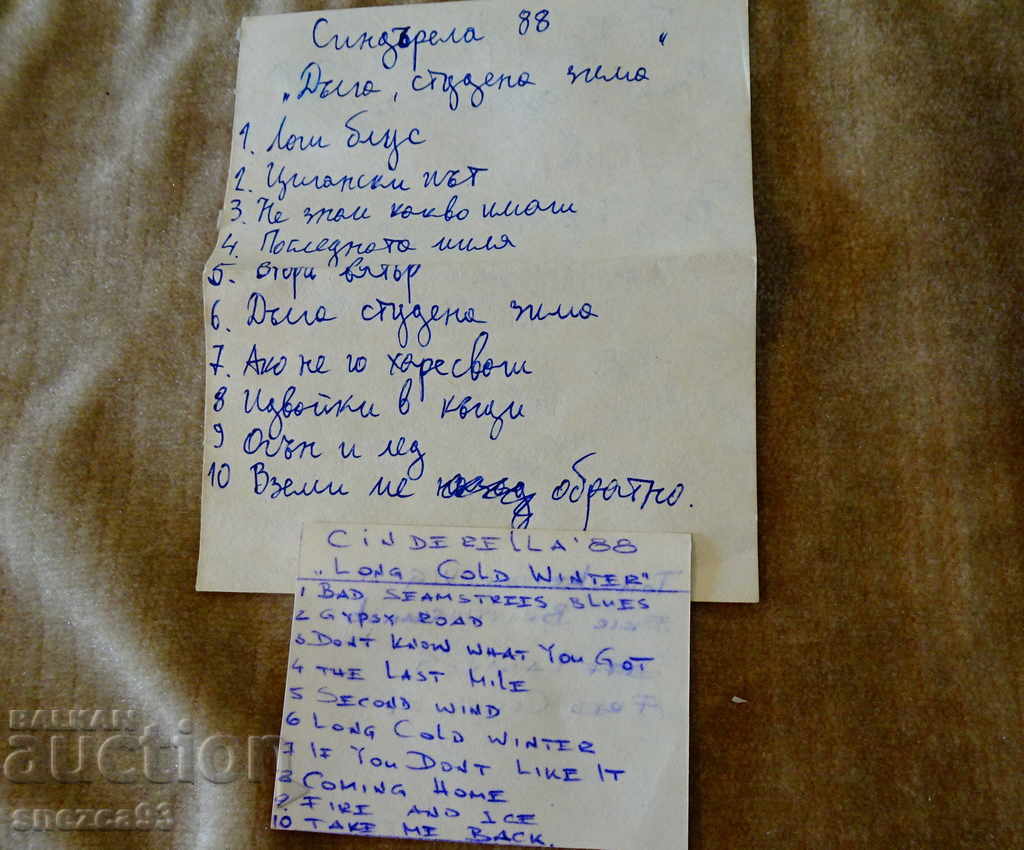 Синдърела 88
„Дълга, студена зима"
1. Лош блус
2. Цигански път
3. Не знам какво имаш
4. Последната миля
5. Втори вятър
6. Дълга студена зима
7. Ако не го харесваш
8 Идвайки в къщи
9 Огън и лед
10 Вземи ме обратно.
CINDERELLA'88
„LONG COLD WINTER"
1 BAD SEAMSTREES BLUES
2 GYPSY ROAD
3 DONT KNOW WHAT YOU GOT
4 THE LAST MILE
5 SECOND WIND
6 LONG COLD WINTER
7 IF YOU DONT LIKE IT
8 COMING HOME
9. FIRE AND ICE
10 TAKE ME BACK.
BALKAN
auction
snezca93